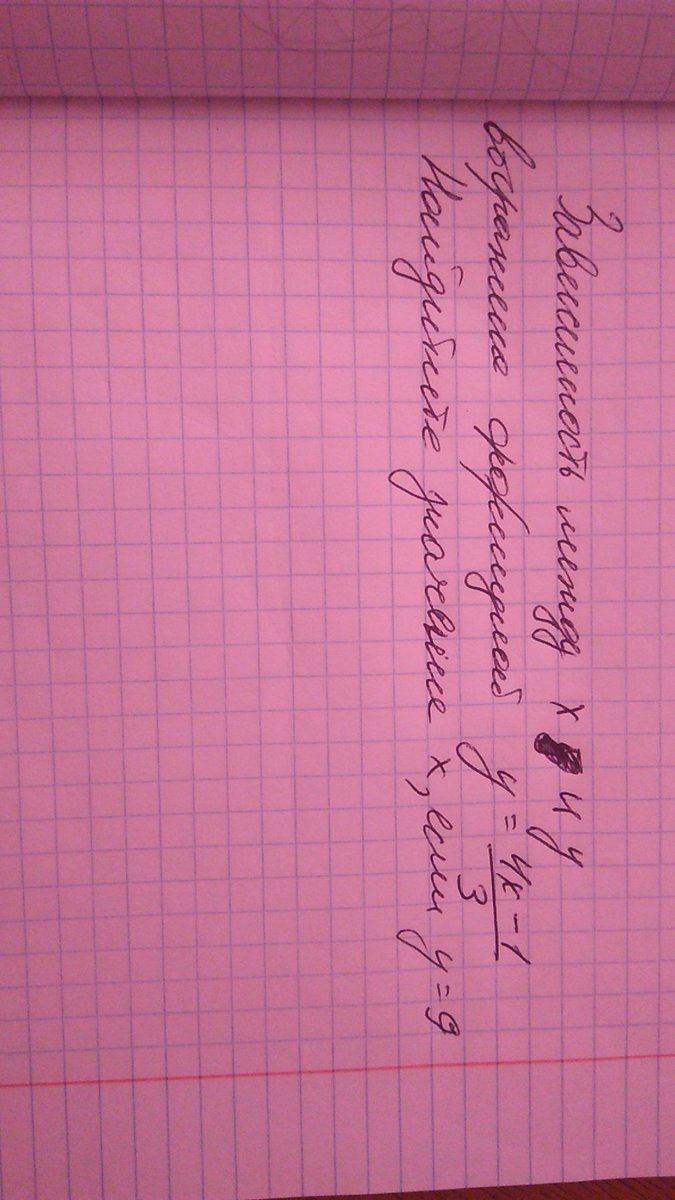 Зависимость между x и y
выражена формулой y = 4x - 1 / 3
Найдите значение x, если y = 9